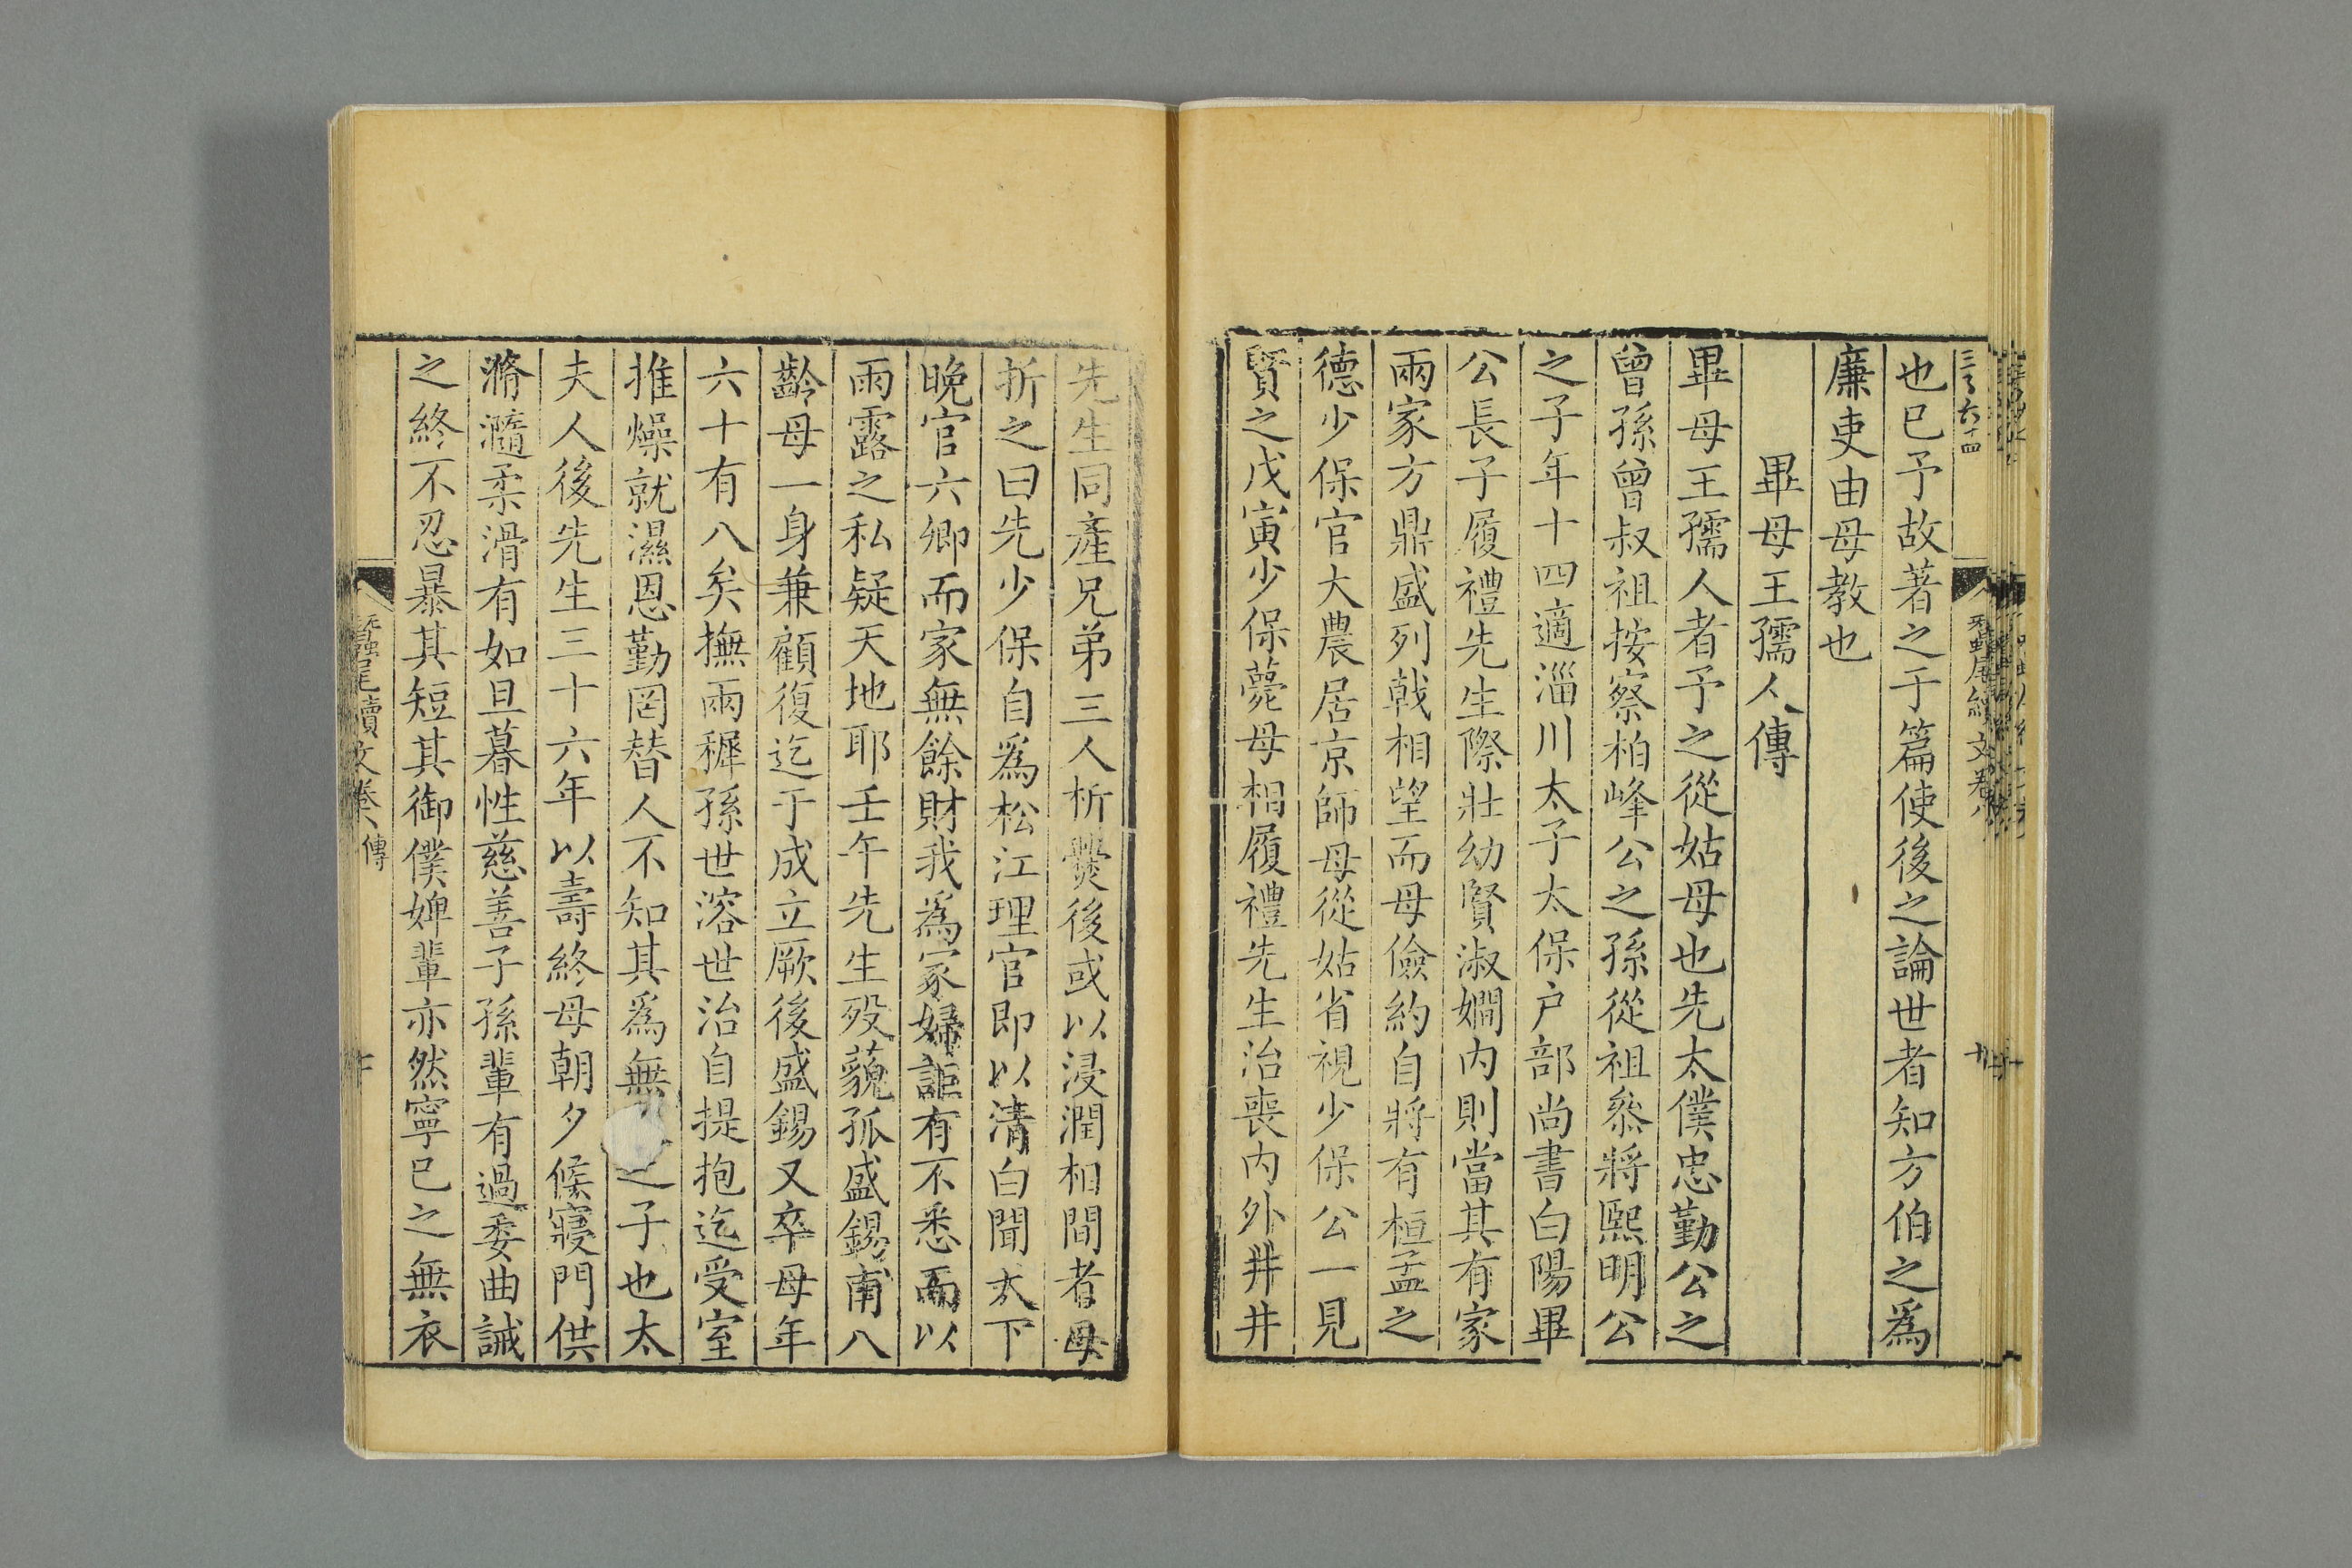 三百六十四
蠶尾續文卷八
也已予故著之于篇使後之論世者知方伯之爲
廉吏由母教也
畢母王孺人傳
畢母王孺人者予之從姑母也先太僕忠勤公之
曾孫曾叔祖按察柏峰公之孫從祖叅將熙明公
之子年十四適淄川太子太保户部尚書白陽畢
公長子履禮先生際壯幼賢淑嫺内則當其有家
兩家方鼎盛列戟相望而母儉約自將有桓孟之
德少保官大農居京師母從姑省視少保公一見
賢之戊寅少保薨母相履禮先生治喪内外井井
先生同產兄弟三人析㸑後或以浸潤相間者母
折之曰先少保自爲松江理官即以清白聞太下
晚官六卿而家無餘財我爲冡婦詎有不悉而以
雨露之私疑天地耶壬午先生歿藐孤盛錫甫八
齡母一身兼顧復迄于成立厥後盛錫又卒母年
六十有八矣撫兩穉孫世溶世治自提抱迄受室
推燥就濕恩勤罔替人不知其爲無之子也太
夫人後先生三十六年以壽終母朝夕候寢門供
滫瀡柔滑有如旦暮性慈善子孫輩有過委曲誡
之終不忍暴其短其御僕婢輩亦然寧已之無衣
蠶尾續文卷八 傳